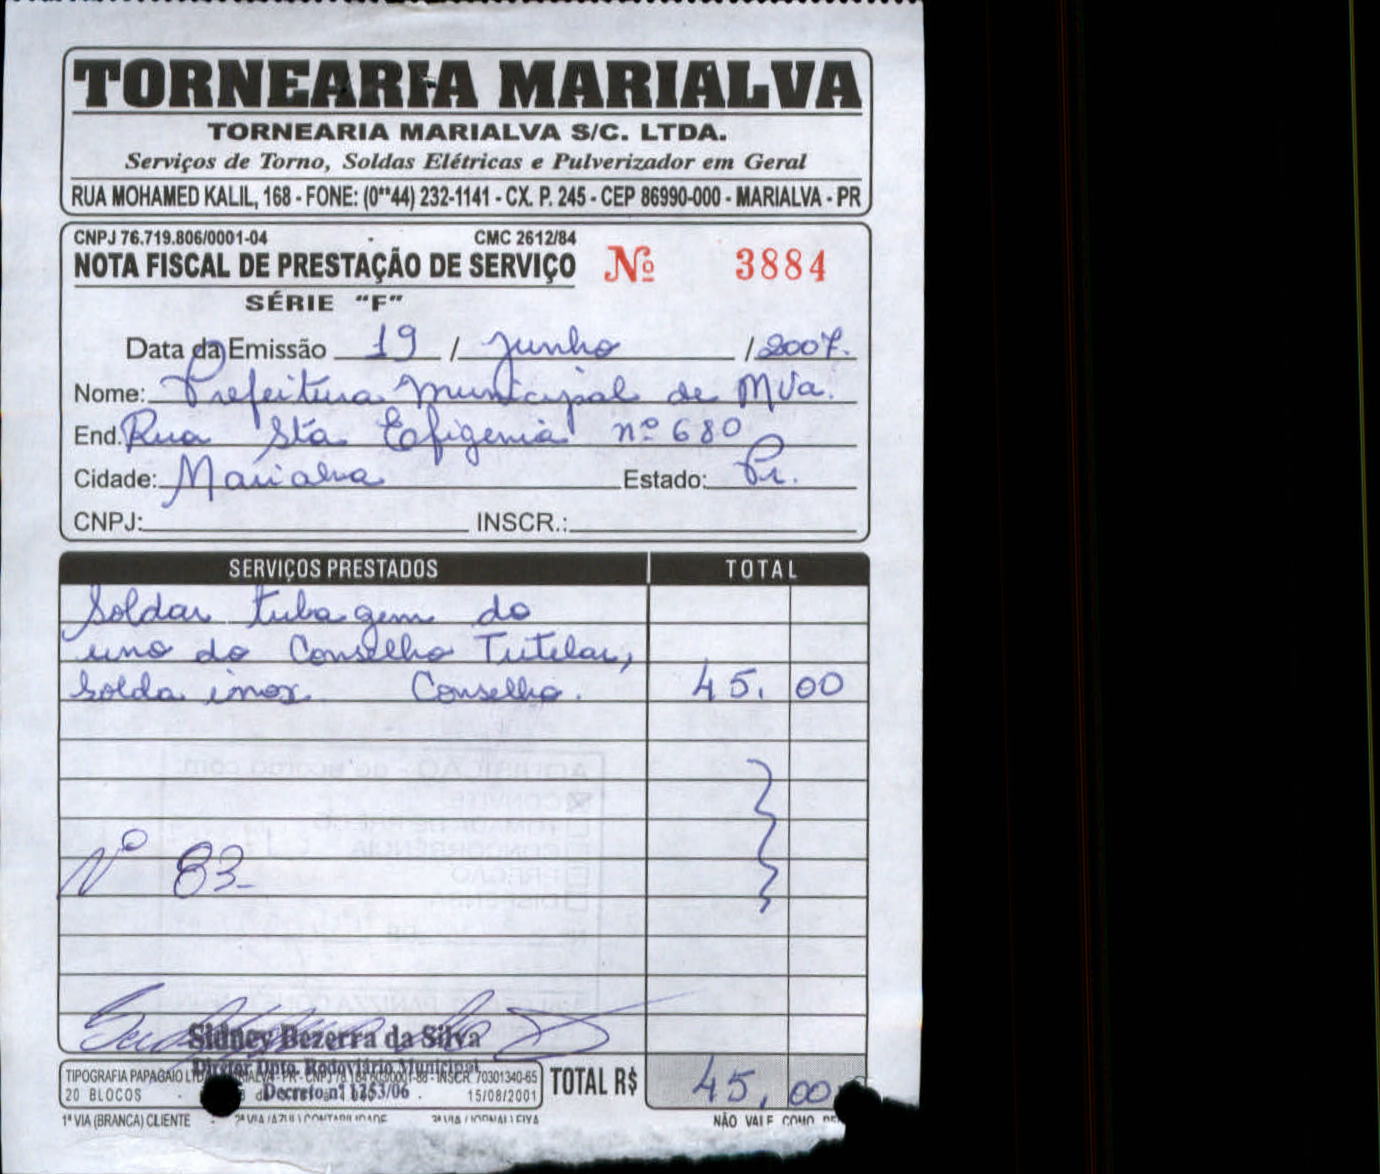 TORNEARIA MARIALVA
TORNEARIA MARIALVA S/C. LTDA.
Serviços de Torno, Soldas Elétricas e Pulverizador em Geral
RUA MOHAMED KALIL, 168 - FONE: (0**44) 232-1141 - CX. P. 245 - CEP 86990-000 - MARIALVA - PR
CNPJ 76.719.806/0001-04 CMC 2612/84
NOTA FISCAL DE PRESTAÇÃO DE SERVIÇO Nº 3884
SÉRIE "F"
Data da Emissão 19 / Junho / 2007.
Nome: Prefeitura Municipal de Mva.
End. Rua Sta Efigenia nº 680
Cidade: Marialva Estado: Pr.
CNPJ: INSCR.:
SERVIÇOS PRESTADOS TOTAL
Soldar tubagem do
uno do Conselho Tutelar,
solda inox. Conselho. 45,00
Nº 83
Sidney Bezerra da Silva
Diretor Dpto. Rodoviário Municipal
Decreto nº 1253/06
TIPOGRAFIA PAPAGAIO INSCR. 70301340-65
20 BLOCOS 15/08/2001
TOTAL R$ 45,00
1ª VIA (BRANCA) CLIENTE - 2ª VIA (AZUL) CONTABILIDADE NÃO VALE COMO